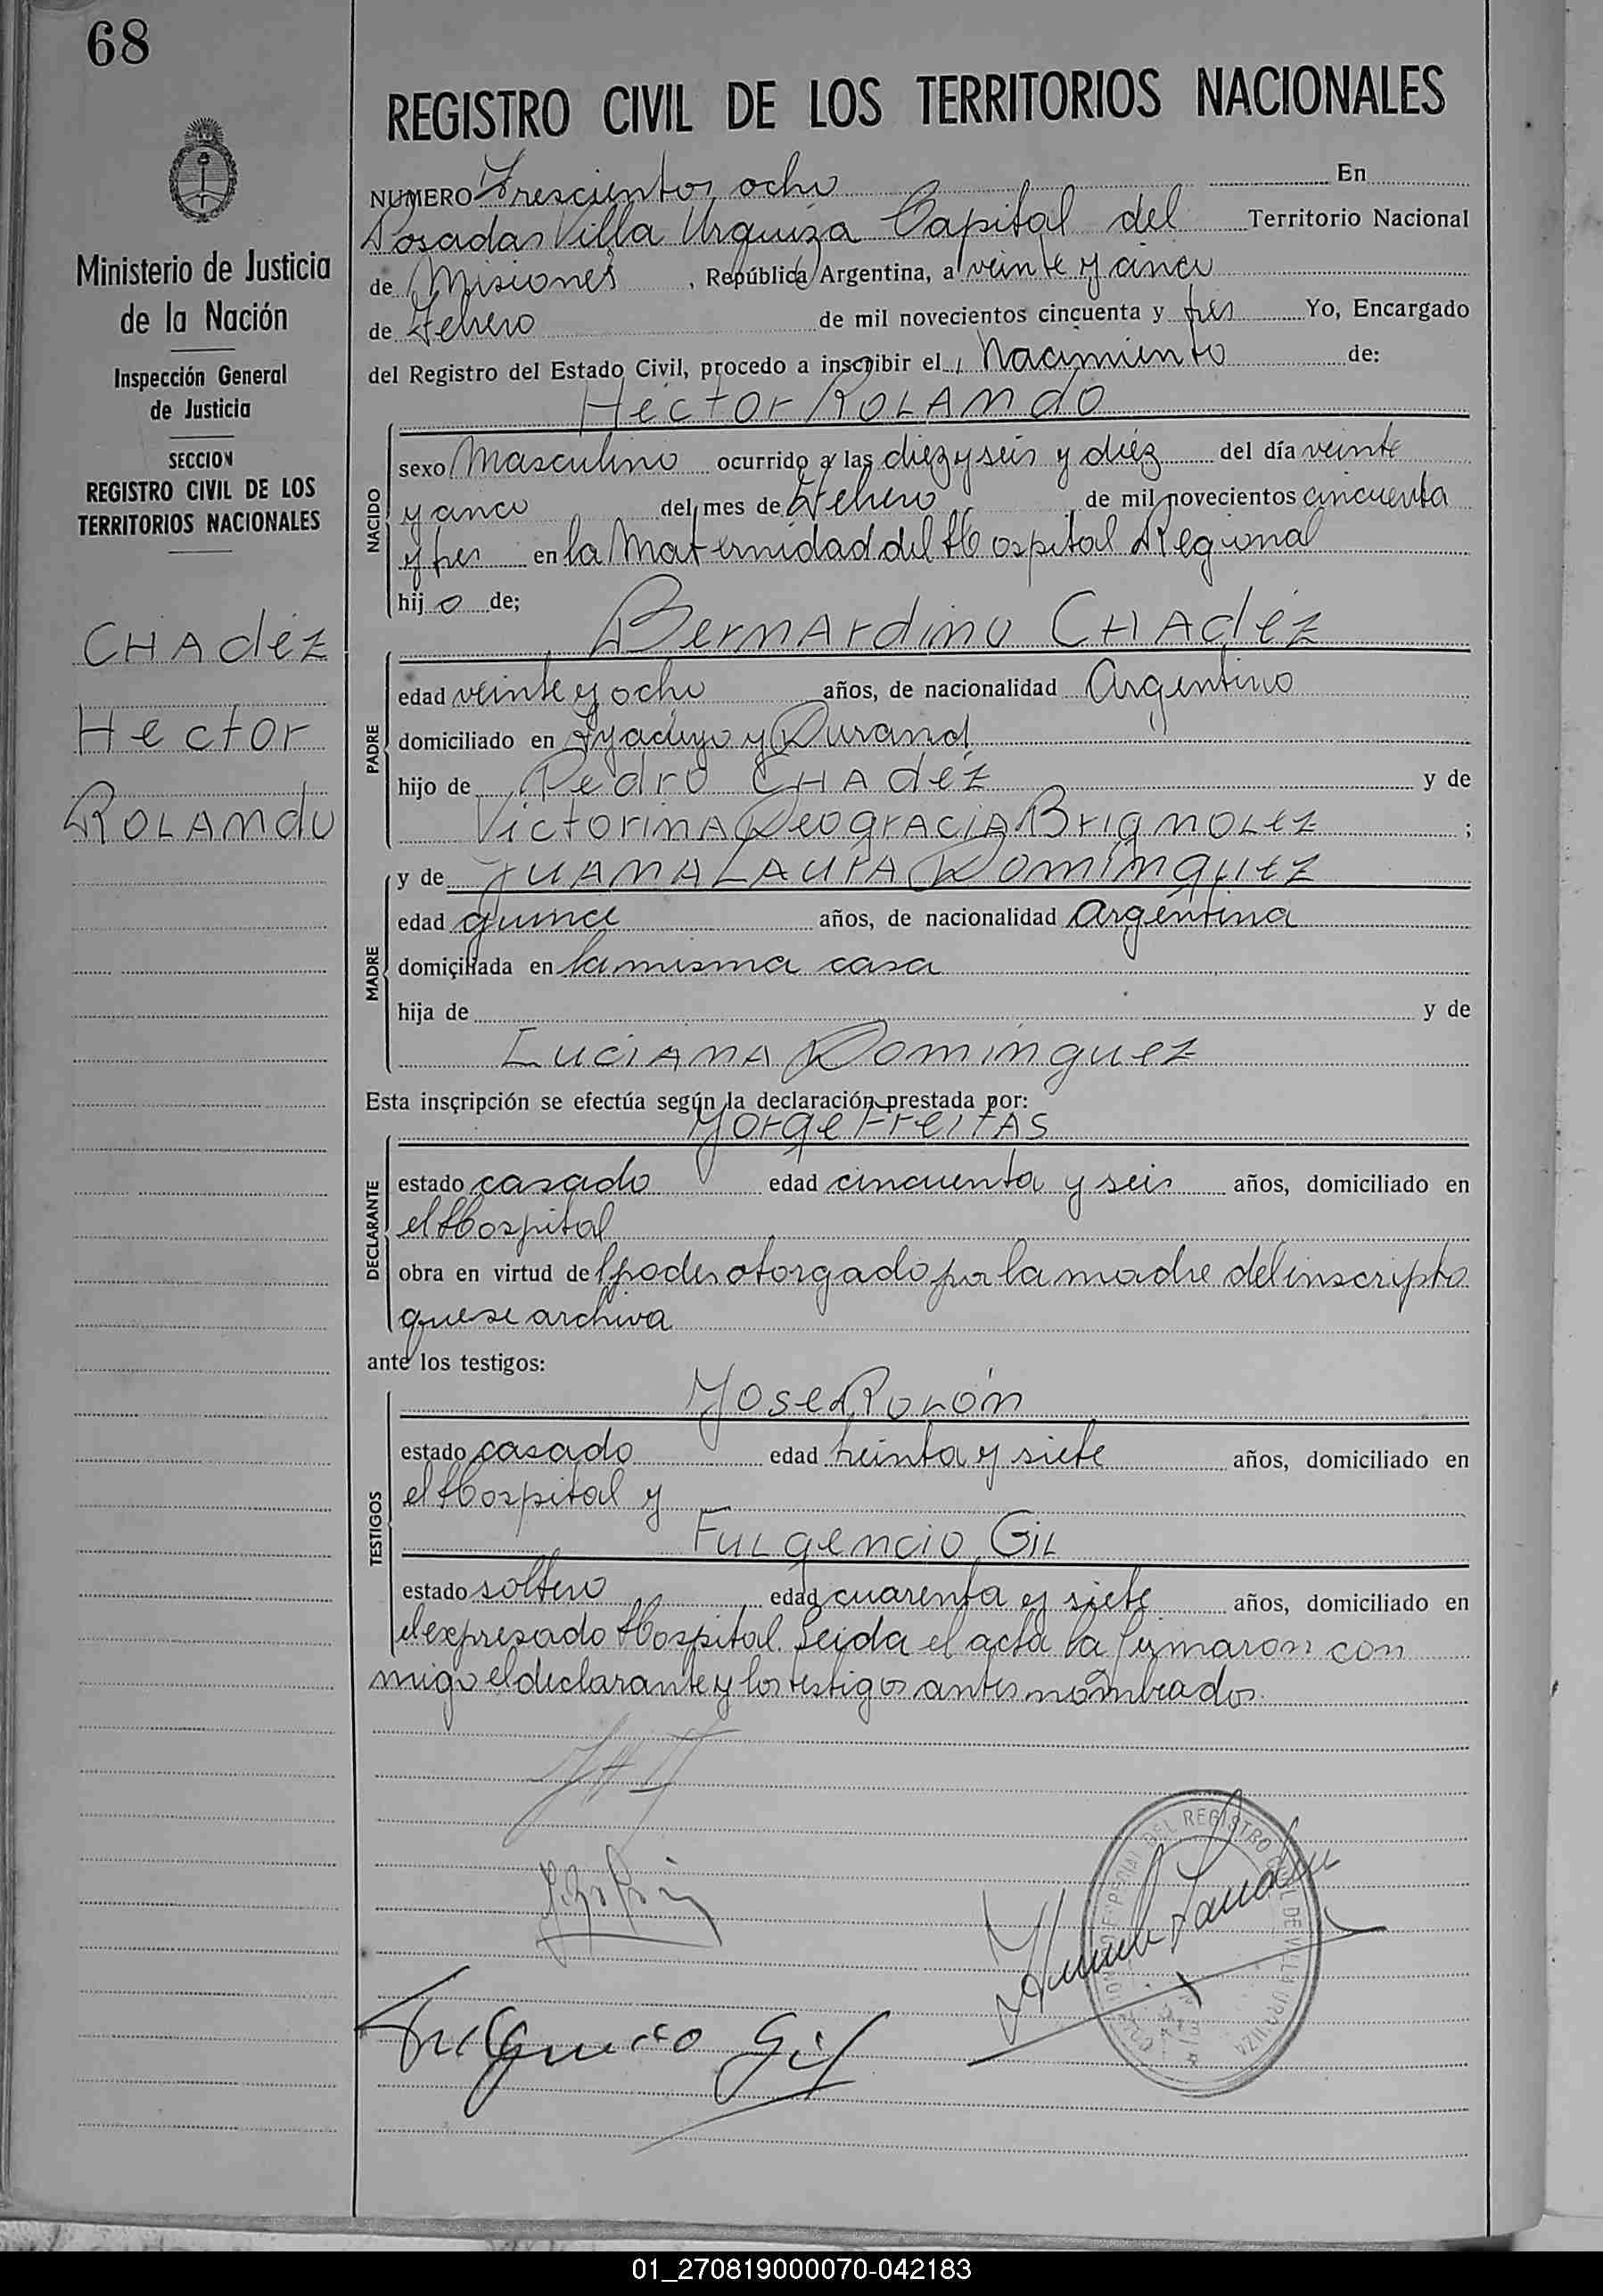 68
REGISTRO CIVIL DE LOS TERRITORIOS NACIONALES
NUMERO Trescientos ocho En
Posadas Villa Urquiza Capital del Territorio Nacional
de Misiones, República Argentina, a veinte y cinco
de Febrero de mil novecientos cincuenta y tres Yo, Encargado
del Registro del Estado Civil, procedo a inscribir el Nacimiento de:
Hector ROLANdO
Ministerio de Justicia
de la Nación
Inspección General
de Justicia
SECCION
REGISTRO CIVIL DE LOS
TERRITORIOS NACIONALES
CHAdéz
Hector
ROLANdO
NACIDO
sexo Masculino ocurrido a las diez y seis y diéz del día veinte
y cinco del mes de Febrero de mil novecientos cincuenta
y tres en la Maternidad del Hospital Regional
hijo de;
BernArdino CHAdéz
PADRE
edad veinte y ocho años, de nacionalidad Argentino
domiciliado en Ayacuyo y Durand
hijo de Pedro CHAdéz y de
VictorinA DeogrAciA BrignoLez ;
MADRE
y de JUANA LAurA Domínguez
edad quince años, de nacionalidad argentina
domiciliada en la misma casa
hija de y de
LuciAnA Domínguez
Esta inscripción se efectúa según la declaración prestada por:
Jorge FreitAS
DECLARANTE
estado casado edad cincuenta y seis años, domiciliado en
el Hospital
obra en virtud del poder otorgado por la madre del inscripto
que se archiva
ante los testigos:
José RoLón
TESTIGOS
estado casado edad treinta y siete años, domiciliado en
el Hospital y
FuLgencio GiL
estado soltero edad cuarenta y siete años, domiciliado en
el expresado Hospital. Leida el acta la firmaron con
migo el declarante y los testigos antes nombrados.
DEL REGISTRO CIVIL DE VILLA URQUIZA
Fulgencio Gil
01_270819000070-042183